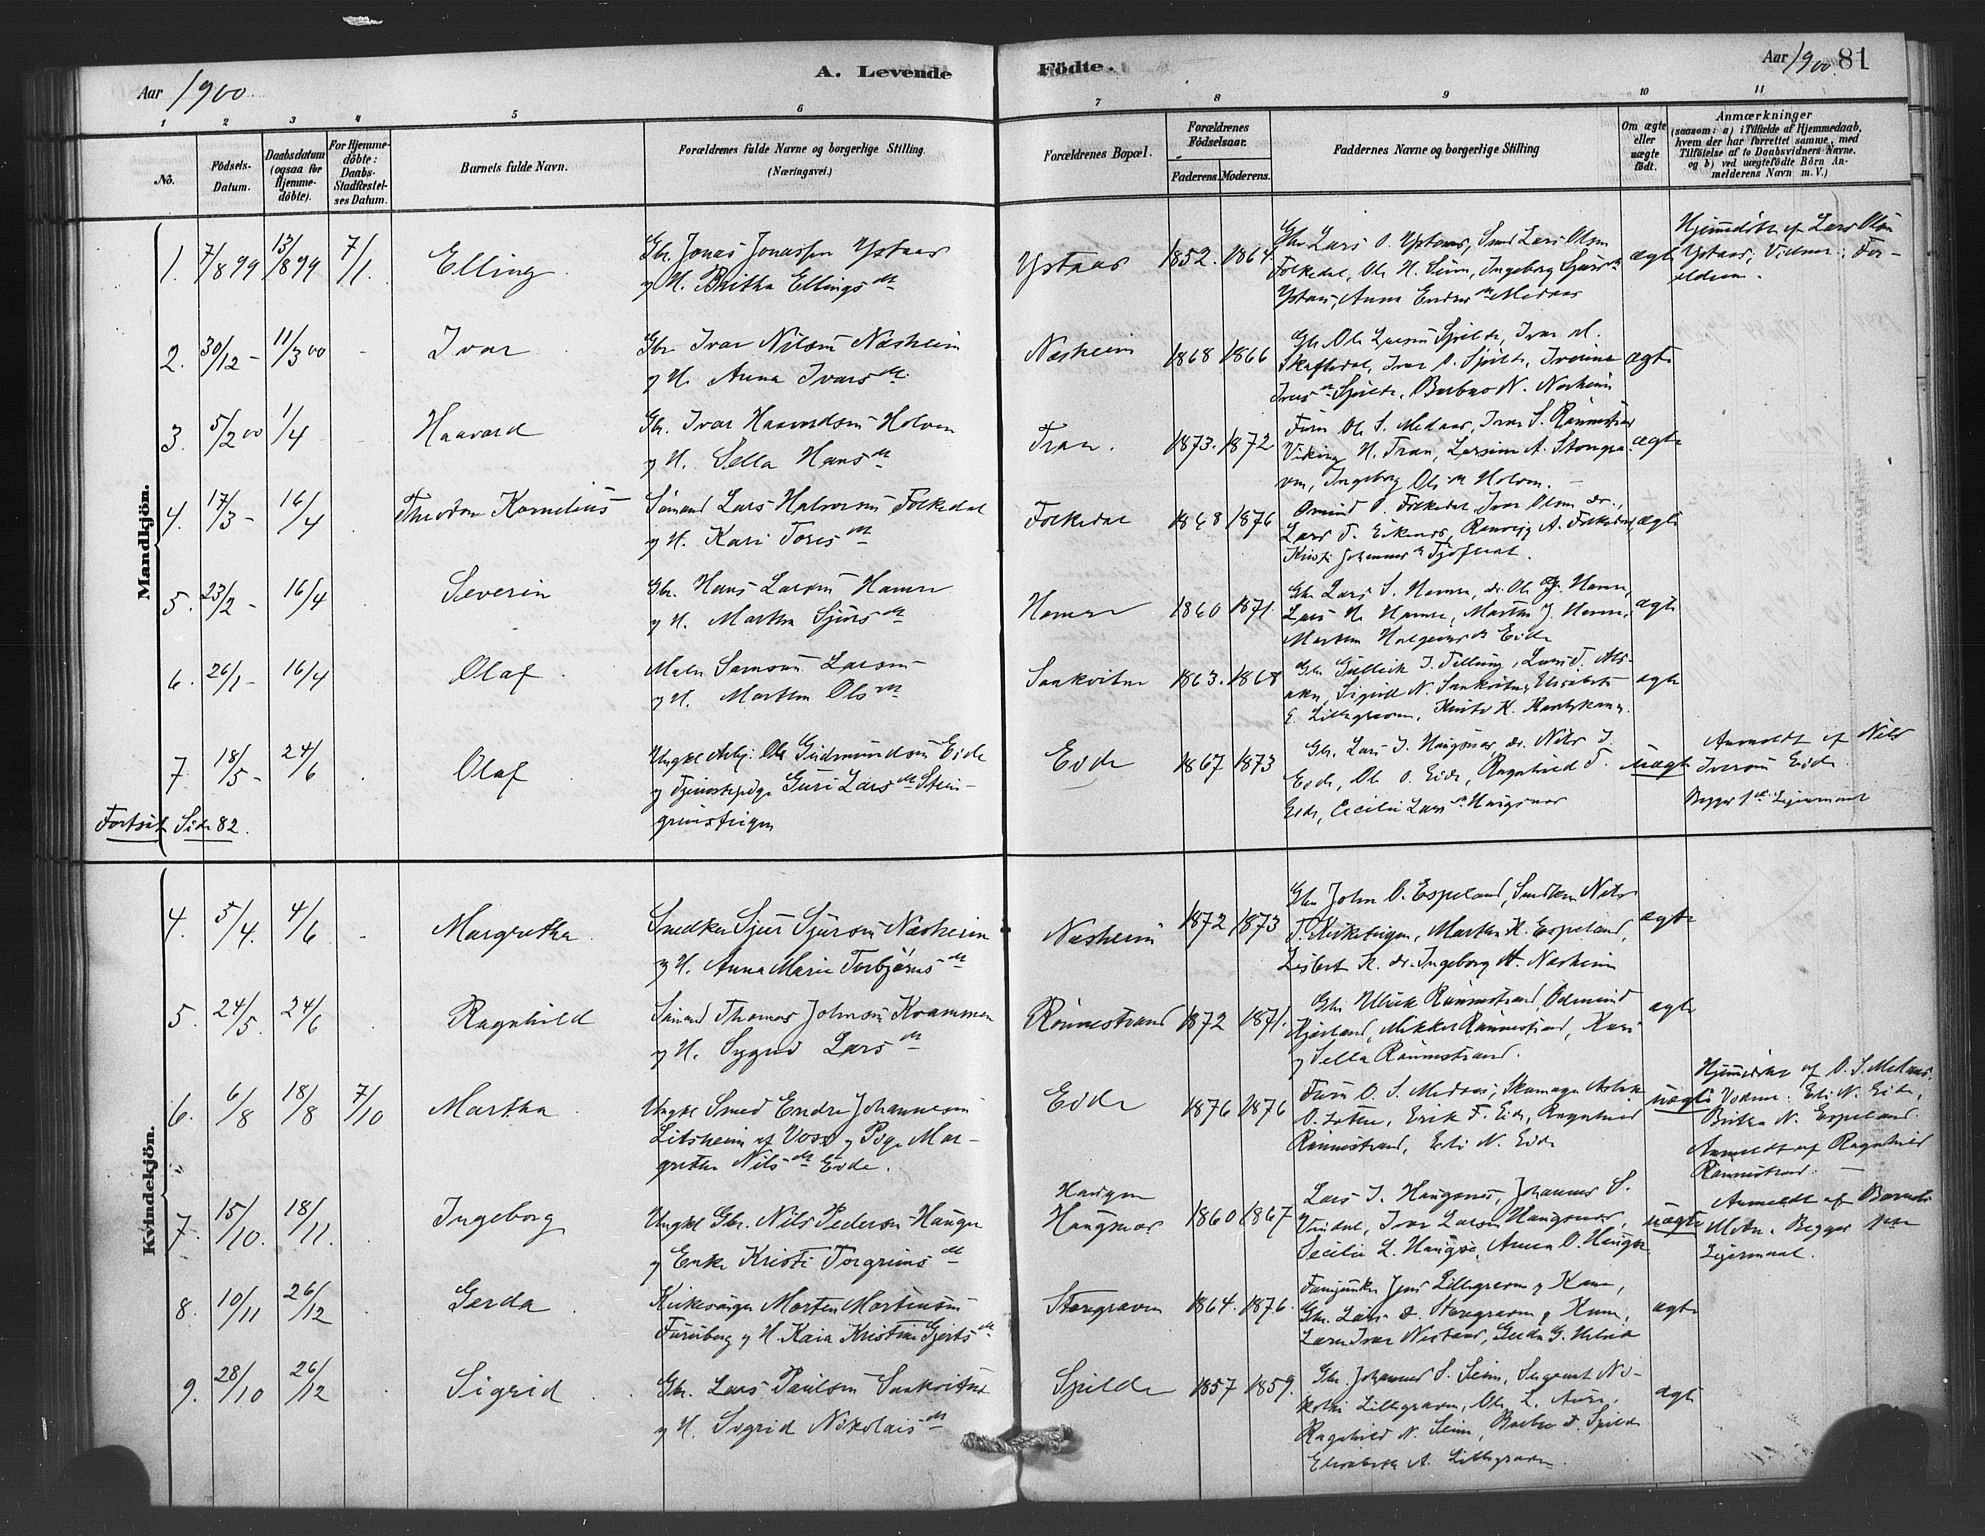 Aar 1900
A. Levende Födte.
Aar 1900 81
1 2 3 4 5 6 7 8 9 10 11
No.
Födsels-Datum.
Daabsdatum (ogsaa for Hjemmedöbte).
For Hjemmedöbte: Daabs-Stadfæstelses Datum.
Barnets fulde Navn.
Forældrenes fulde Navne og borgerlige Stilling (Næringsvei.)
Forældrenes Bopæl.
Forældrenes Födselsaar.
Faderens. Moderens.
Faddernes Navne og borgerlige Stilling
Om ægte eller uægte födt.
Anmærkninger
(saasom: a) i Tilfælde af Hjemmedaab, hvem der har forrettet samme, med Tilföielse af to Daabsvidners Navne, og b) ved uægtefödte Börn Anmelderens Navn m. V.)
Mandkjön.
1. 7/8 99 13/8 99 7/1. Elling.
Gbr. Jonas Jonassen Ystaas
og H. Britha Ellingsdtr
Ystaas 1852. 1864.
Gbr. Lars O. Ystaas, Smed Lars Olsen
Folkedal, Ole H. Seim, Ingeborg Sjurs dtr
Ystaas, Anna Endresdtr Medaas
ægte
Hjemmedöbt af Lars Olsen
Ystaas, Vidner: For-
ældrene.
2. 30/12 - 11/3 00 - Ivar
Gbr. Ivar Nilsen Næsheim
og H. Anna Ivarsdtr.
Næsheim 1868 1866
Gbr. Ole Larsen Spilde, Ivar
Skaftedal, Ivar O. Spilde, Iverine
Ivers dtr Spilde, Barbro N. Næsheim
ægte
3. 5/2 00 1/4 - Haavard
Gbr. Ivar Haavardsen Holven
og H. Sella Hansdtr
Tran. 1873. 1872
Ole S. Medaas, Ivar S. Rönnestrand
Viking H. Tran, A. Storegra-
ven, Ingeborg Ols dtr Holven.
ægte
4. 17/3 - 16/4 Theodor Kornelius
Sömand Lars Halvorsen Folkedal
og H. Kari Toresdtr
Folkedal 1868 1876
O. Folkedal, Ivar Olsen do.,
Lars T. Eikenes, A. Folkedal,
Kristi Johannes dtr
ægte
5. 23/2 - 16/4 Severin
Gbr. Hans Larsen Hamre
og H. Martha Sjursdtr
Hamre 1860 1871.
Gbr. Lars S. Hamre, do. Ole J. Hamre,
Lars H. Hamre, Martha J. Hamre,
Martha dtr Eide
ægte
6. 26/1 - 16/4 Olaf
Maler Samson Larsen
og H. Martha Olsdtr
Saakvitne 1863. 1868
Gbr. Gullik J. Tillung, Lars T. Als-
aker, Sigvald N. Saakvitne, Elisabeth
E. Lillegraven,
ægte
7 18/5 - 24/6 Olaf
Ungkl Arb. Ole Gudmundsen Eide
og Tjenestepige Guri Larsdtr Stein-
grimsteigen
Eide 1867 1873
Gbr. Lars J. Haugsnæs, do. Nils I.
Eide, Ole O. Eide, Ragnhild T.
Eide, Cecilie Lars dtr Haugsnæs
uægte
Anmeldt af Nils
Iversen Eide.
Begges 1ste Leiermaal
Fortsæt Side 82.
Kvindekjön.
4. 5/4. 4/6 - Margretha.
Snedker Sjur Sjursen Næsheim
og H. Anna Marie Torbjörnsdtr
Næsheim 1872 1873
Gbr. John O. Espeland, Snedker Nils
T. Kirketeigen, Martha K. Espeland,
Lisbet K. do. Ingeborg H. Næsheim
ægte
5. 24/5. 24/6 Ragnhild
Sömand Thomas Johnsen Kvammen
og H. Sygni Larsdtr
Rönnestrand 1872 1871.
Gbr. Ulrik Rönnestrand, Odmund
Kjærland, Mikkel Rönnestrand, Kari
og Sella Rönnestrand.
ægte
6. 6/8 18/8 7/10 Martha
Ungkl Smed Endre Johannesen
Litsheim af Voss og Pige Mar-
grethe Nilsdtr Eide.
Eide 1876 1876
O. S. Medaas, Skomager Aslak
O. Erik F. Eide, Ragnhild
Rönnestrand, Eli N. Eide
uægte
Hjemmedöbt af O. S. Medaas.
Vidner: Eli N. Eide,
Britha N. Espeland.
Anmeldt af Ragnhild
Rönnestrand. —
7. 15/10. 18/11. Ingeborg
Ungkl Gbr. Nils Pedersen Haugse
og Enke Kristi Torgrimsdtr
Haugsnæs 1860 1867
Lars J. Haugsnæs, Johannes S.
Vindal, Ivar Larsen Haugsnæs,
Cecilie L. Haugse, Anna O. Haugse
uægte
Anmeldt af Barnets
Moder. Begges 1ste
Leiermaal.
8. 10/11 26/12 Gerda
Kirkesanger Morten Mortensen
Furuberg og H. Kaia Kristine Gjertsdtr
Storgraven 1864. 1876.
Fanejunker Jens Lillegraven og Kone,
Gbr. Lars Storegraven og Kone,
Ivar Næstaas, Gerda G.
ægte
9. 28/10 26/12 Sigrid
Gbr. Lars Paulsen Saakvitne
og H. Sigrid Nikolaisdtr
Spilde 1857 1859.
Gbr. Johannes S. Seim, Sergeant Ni-
kolai Lillegraven, Ole L. Aure,
Ragnhild N. Seim, Barbro Spilde
Elisabeth A. Lillegraven.
ægte